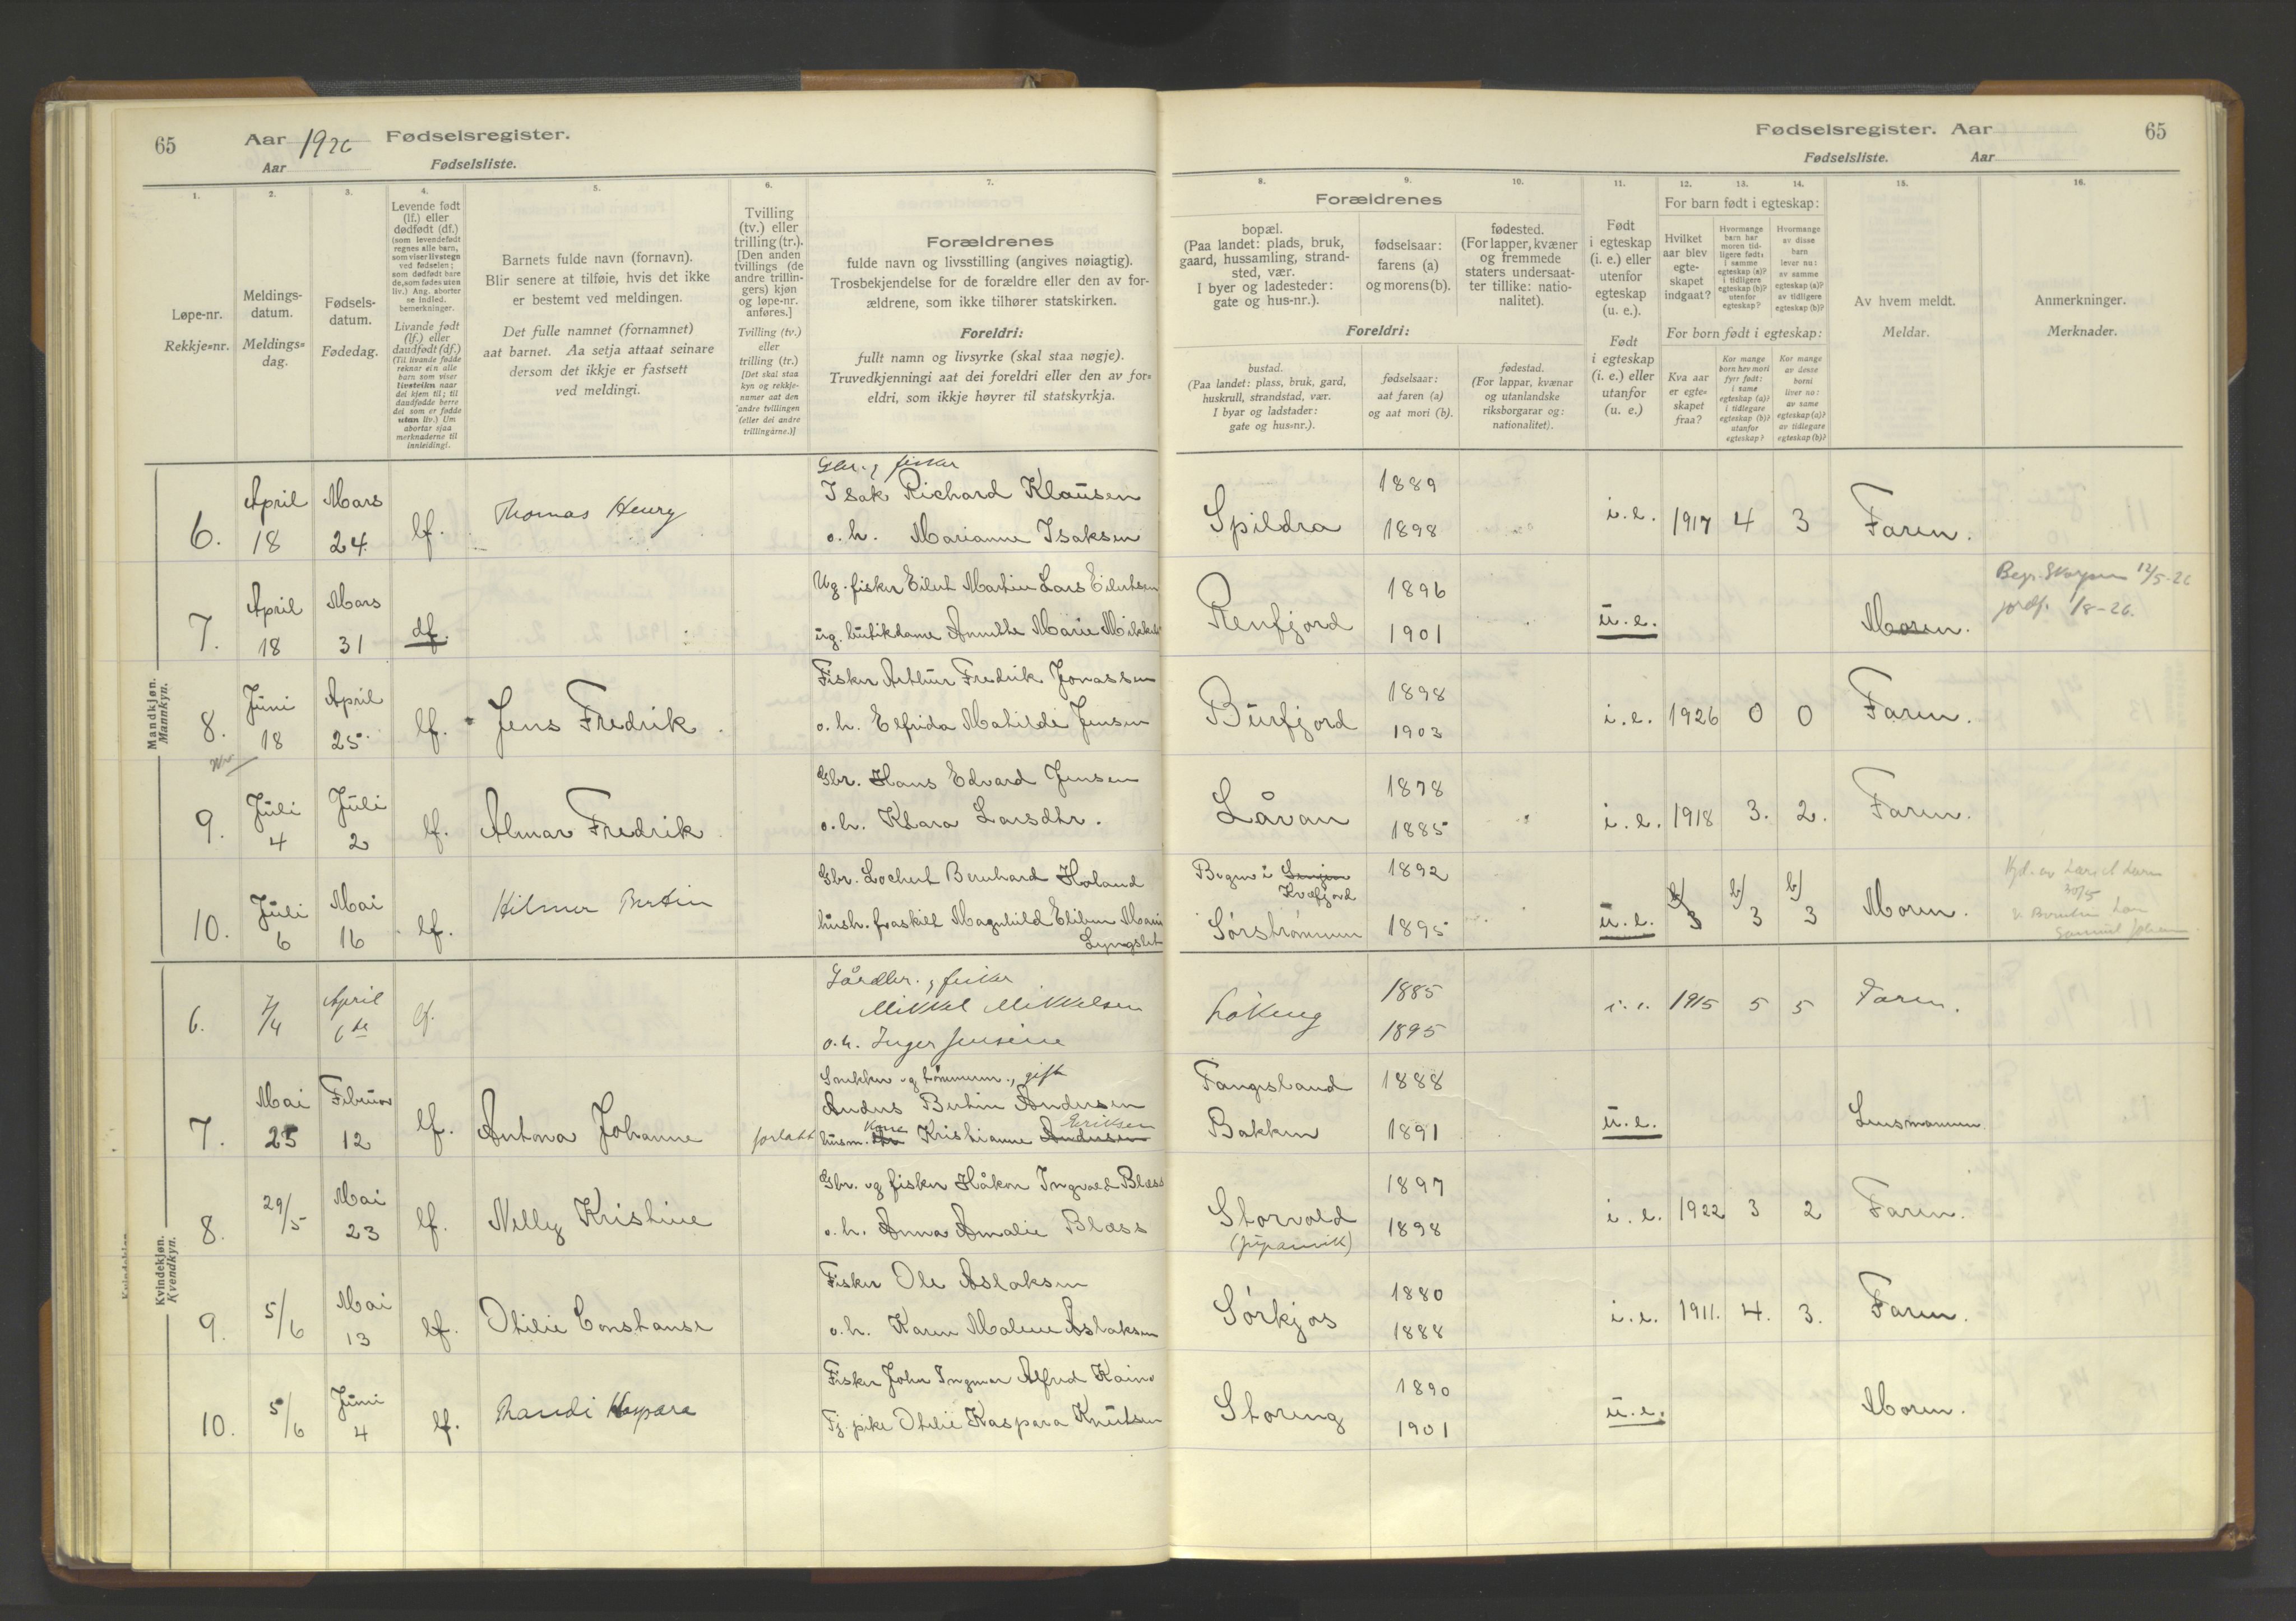 65 Aar 1926 Fødselsregister.
Aar Fødselsliste.
Fødselsregister. Aar 65
Fødselsliste. Aar
1. 2. 3. 4. 5. 6. 7. 8. 9. 10. 11. 12. 13. 14. 15. 16.
Løpe-nr.
Rekkje=nr.
Meldings-
datum.
Meldings=
dag.
Fødsels-
datum.
Fødedag.
Levende født
(lf.) eller
dødfødt (df.)
(som levendefødt
regnes alle barn,
som viser livstegn
ved fødselen;
som dødfødt bare
de, som fødes uten
liv.) Ang. aborter
se indled.
bemerkninger.
Livande født
(lf.) eller
daudfødt (df.)
(Til livande fødde
reknar ein alle
barn som viser
livsteikn naar
dei kjem til; til
daudfødde berre
dei som er fødde
utan liv.) Um
abortar sjaa
merknaderne til
innleidingi.
Barnets fulde navn (fornavn).
Blir senere at tilføie, hvis det ikke
er bestemt ved meldingen.
Det fulle namnet (fornamnet)
aat barnet. Aa setja attaat seinare
dersom det ikkje er fastsett
ved meldingi.
Tvilling
(tv.) eller
trilling (tr.).
[Den anden
tvillings (de
andre trillin-
gers) kjøn
og løpe-nr.
anføres.]
Tvilling (tv.)
eller
trilling (tr.)
[Det skal staa
kyn og rekkje-
numer aat den
andre tvillingen
(eller dei andre
trillingarne.)]
Forældrenes
fulde navn og livsstilling (angives nøiagtig).
Trosbekjendelse for de forældre eller den av for-
ældrene, som ikke tilhører statskirken.
Foreldri:
fullt namn og livsyrke (skal staa nøgje).
Truvedkjenningi aat dei foreldri eller den av for=
eldri, som ikkje høyrer til statskyrkja.
Forældrenes
bopæl.
(Paa landet: plads, bruk,
gaard, hussamling, strand-
sted, vær.
I byer og ladesteder:
gate og hus-nr.).
fødselsaar:
farens (a)
og morens (b).
fødested.
(For lapper, kvæner
og fremmede
staters undersaat-
ter tillike: natio-
nalitet).
Foreldri:
bustad.
(Paa landet: plass, bruk, gard,
huskrull, strandstad, vær.
I byar og ladstader:
gate og hus=nr.).
fødselsaar:
aat faren (a)
og aat mori (b).
fødestad.
(For lappar, kvænar
og utanlandske
riksborgarar og:
nationalitet).
Født
i egteskap
(i. e.) eller
utenfor
egteskap
(u. e.).
Født
i egteskap
(i. e.) eller
utanfor
(u. e.)
For barn født i egteskap:
Hvilket
aar blev
egte-
skapet
indgaat?
Hvormange
barn har
moren tid-
ligere født:
i samme
egteskap (a)?
i tidligere
egteskap (b)?
utenfor
egteskap?
Hvormange
av disse
barn
lever nu:
av samme
egteskap (a)?
av tidligere
egteskap (b)?
For born født i egteskap:
Kva aar
er egte=
skapet
fraa?
Kor mange
born hev mori
fyrr født:
i same
egteskap (a)?
i tidlegare
egteskap (b)?
utanfor
egteskap?
Kor mange
av desse
borni
liver no:
av same
egteskap (a)?
av tidlegare
egteskap (b)?
Av hvem meldt.
Meldar.
Anmerkninger.
Merknader.
Mandkjøn.
Mannkyn.
Gbr. , fisker
6. April 18 Mars 24. lf. Thomas Henry Isak Richard Klausen
o. h. Marianne Isaksen
Spildra 1889 1898 i. e. 1917 4 3 Faren.
7. April 18 Mars 31 df. Ug. fisker Eilert Martin Lars Eilertsen
ug. butikdame Annethe Marie
Renfjord 1896 1901 u. e. Moren. 12/5-26
8. Juni 18 April 25. lf. Jens Fredrik. Fisker Arthur Fredrik Jonassen
o. h. Elfrida Mathilde Jensen
Burfjord 1898 1903 i. e. 1926 0 0 Faren.
9. Juli 4 Juli 2 lf. Almar Fredrik. Gbr. Hans Edvard Jensen
o. h. Klara Larsdtr.
Låvan 1878 1885 i. e. 1918 3. 2. Faren.
10. Juli 6 Mai 16 lf. Hilmer Bertin Gbr. Lochert Bernhard Holand
hush. fraskilt Magnhild Elilen Marie
Kvæfjord
Sørstrømmen 1892 1895 u. e. b/3 b/3 b/3 Moren.
Kvindekjøn.
Kvendkyn.
6. 7/4 April 6te lf. Gårdbr., fisker
Mikkel Mikkelsen
o. h. Inger Jensine
Løkeng 1885 1895 i. e. 1915 5 5 Faren.
7. Mai 25 Februar 12 lf. Antona Johanne forlatt Snekker og tømmerm., gift
Anders Bertin Andersen
husm. Kone Kristianne Andersen Eriksen
Bakken 1888 1891 u. e. Lensmannen
8. 29/5 Mai 23 lf. Nelly Kristine Gbr. og fisker Håkon Ingvald Blæss
o. h. Anna Amalie Blæss
Storvold 1897 1898 i. e. 1922 3 2 Faren.
9. 5/6 Mai 13 lf. Otilie Constanse Fisker Ole Aslaksen
o. h. Karen Malene Aslaksen
Sørkjos 1880 1888 i. e. 1911. 4. 3. Faren.
10. 5/6 Juni 4 lf. Randi Kaspara Fisker John Ingmar Alfred Kaino
Tj. pike Otilie Kaspara Knutsen
Storeng 1890 1901 u. e. Moren.